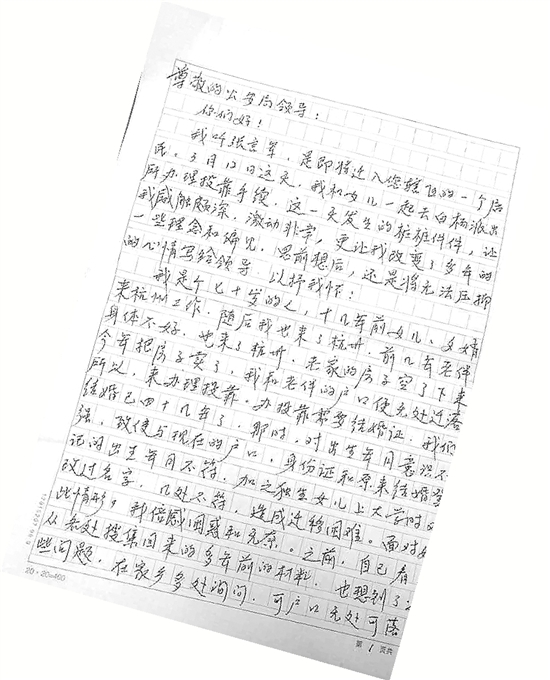 尊敬的公安局领导：
你们好！
我叫张立军，是即将迁入您辖区的一个居
民。3月12日这天，我和女儿一起去白杨派出
所办理投靠手续，这一天发生的桩桩件件，让
我感触颇深，激动非常，更让我改变了多年的
一些理念和偏见。思前想后，还是将无法压抑
的心情写给领导，以抒我怀：
我是个七十岁的人，十几年前女儿、女婿
来杭州工作，随后我也来了杭州，前几年老伴
身体不好，也来了杭州，老家的房子空了下来
今年把房子卖了，我和老伴的户口便无处迁落
所以，来办理投靠。办投靠需要结婚证，我们
结婚已四十几年了，那时，对出生年月意识不
强，致使与现在的户口、身份证和原来结婚登
记的出生年月不符，加之独生女儿上大学时
改过名字，几处不符，造成迁移困难。面对
此情形，我倍感困惑和无奈。之前，自己看
从各处搜集回来的多年前的材料，也想到了
些问题，在家乡多处询问，可户口无处可落
20×20=400
第 1 页共